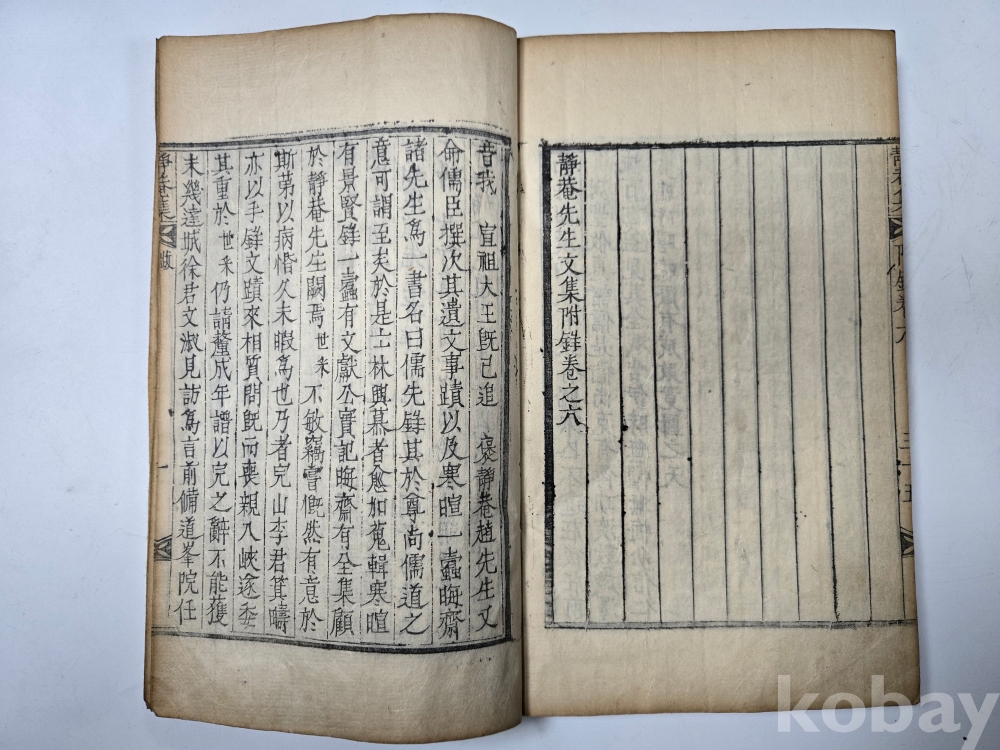 靜菴先生文集附錄卷之六
昔我 宣祖大王既已追 褒靜菴趙先生又
命儒臣撰次其遺文事蹟以及寒暄一蠹晦齋
諸先生爲一書名曰儒先錄其於尊尚儒道之
意可謂至矣於是士林興慕者愈加蒐輯寒暄
有景賢錄一蠹有文獻公實記晦齋有全集顧
於靜菴先生闕焉世采不敏竊嘗慨然有意於
斯第以病惛久未暇爲也乃者完山李君箕疇
亦以手錄文蹟來相質問既而喪親入峽遂委
其重於世采仍請釐成年譜以完之辭不能獲
未幾達城徐君文淑見訪爲言前備道峯院任
靜菴集
跋
一
kobay